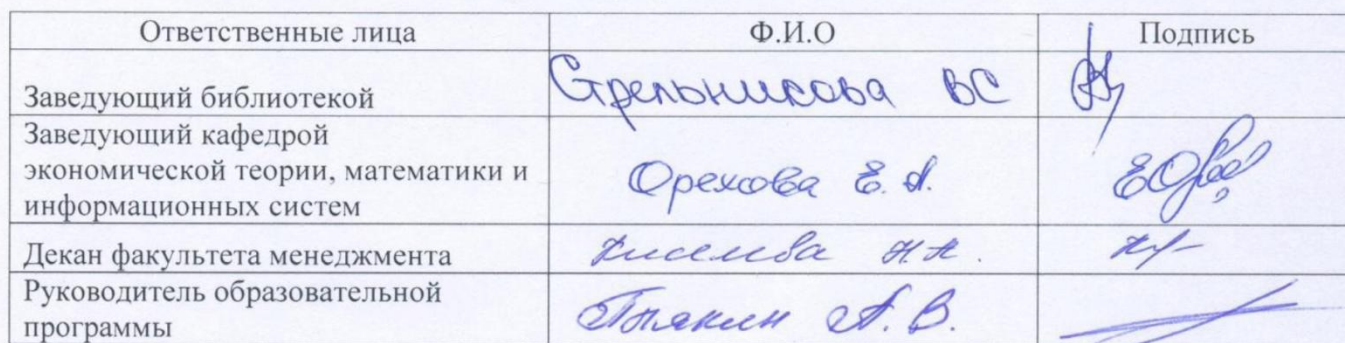 Ответственные лица Ф.И.О Подпись
Заведующий библиотекой Стрельникова ВС
Заведующий кафедрой
экономической теории, математики и
информационных систем Орехова Е.А.
Декан факультета менеджмента Киселева Н.Н.
Руководитель образовательной
программы А.В.